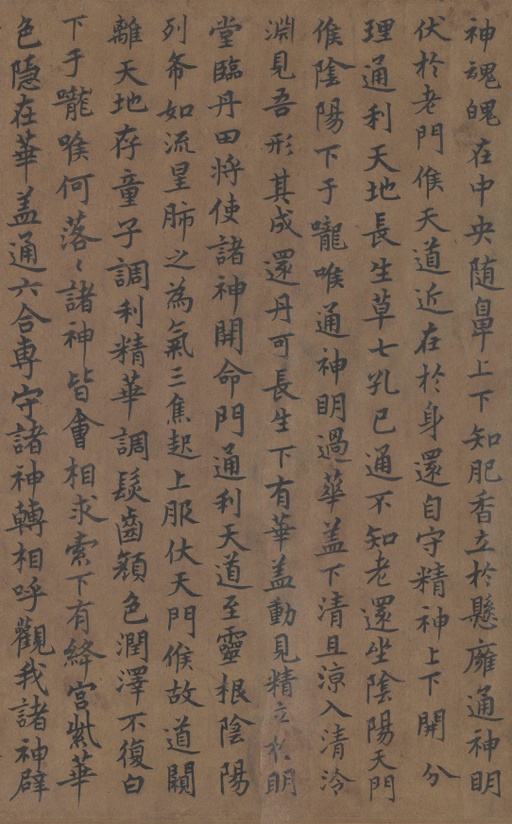 神魂魄在中央随鼻上下知肥香立於懸廱通神明
伏於老門候天道近在於身還自守精神上下開分
理通利天地長生草七孔已通不知老還坐陰陽天門
候陰陽下于嚨喉通神明過華盖下清且涼入清泠
淵見吾形其成還丹可長生下有華盖動見精立於明
堂臨丹田将使諸神開命門通利天道至靈根陰陽
列布如流星肺之為氣三焦起上服伏天門候故道闚
離天地存童子調利精華調髮齒顏色潤澤不復白
下于嚨喉何落落諸神皆會相求索下有絳宮紫華
色隱在華盖通六合専守諸神轉相呼觀我諸神辟